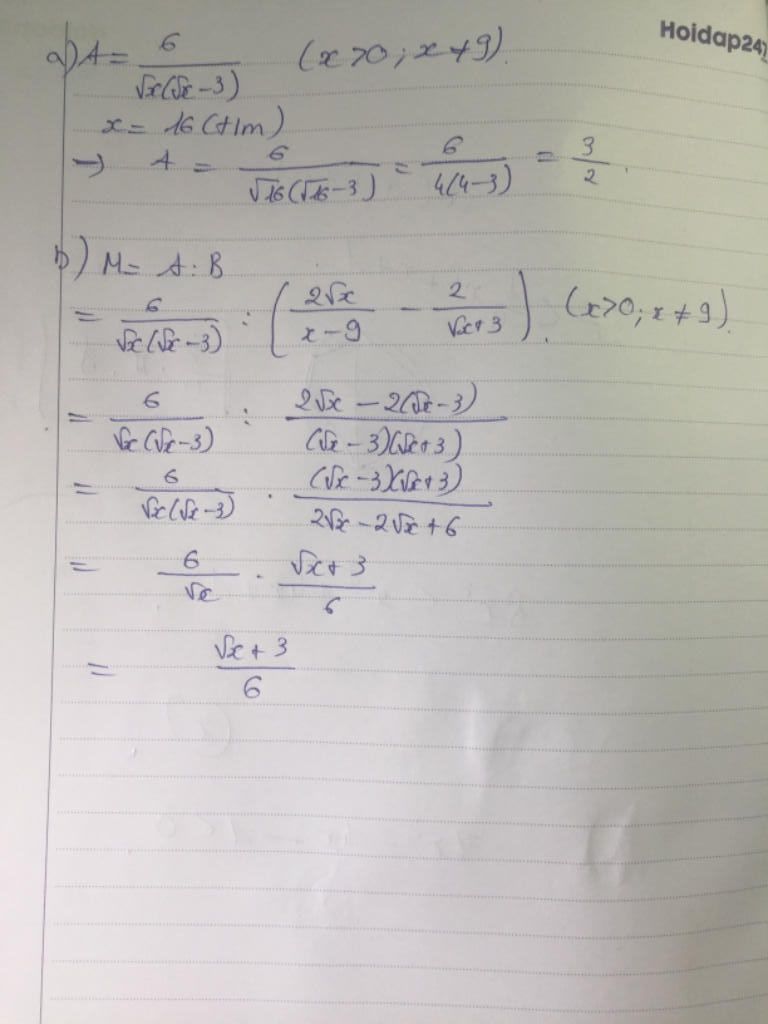 Hoidap247
a) A = 6/(√x(√x-3)) (x>0; x≠9).
x = 16 (t/m)
→ A = 6/(√16(√16-3)) = 6/(4(4-3)) = 3/2.
b) M = A : B
= 6/(√x(√x-3)) : (2√x/(x-9) - 2/(√x+3)). (x>0; x≠9).
= 6/(√x(√x-3)) : (2√x - 2(√x-3))/((√x-3)(√x+3))
= 6/(√x(√x-3)) . ((√x-3)(√x+3))/(2√x-2√x+6)
= 6/√x . (√x+3)/6
= (√x+3)/6